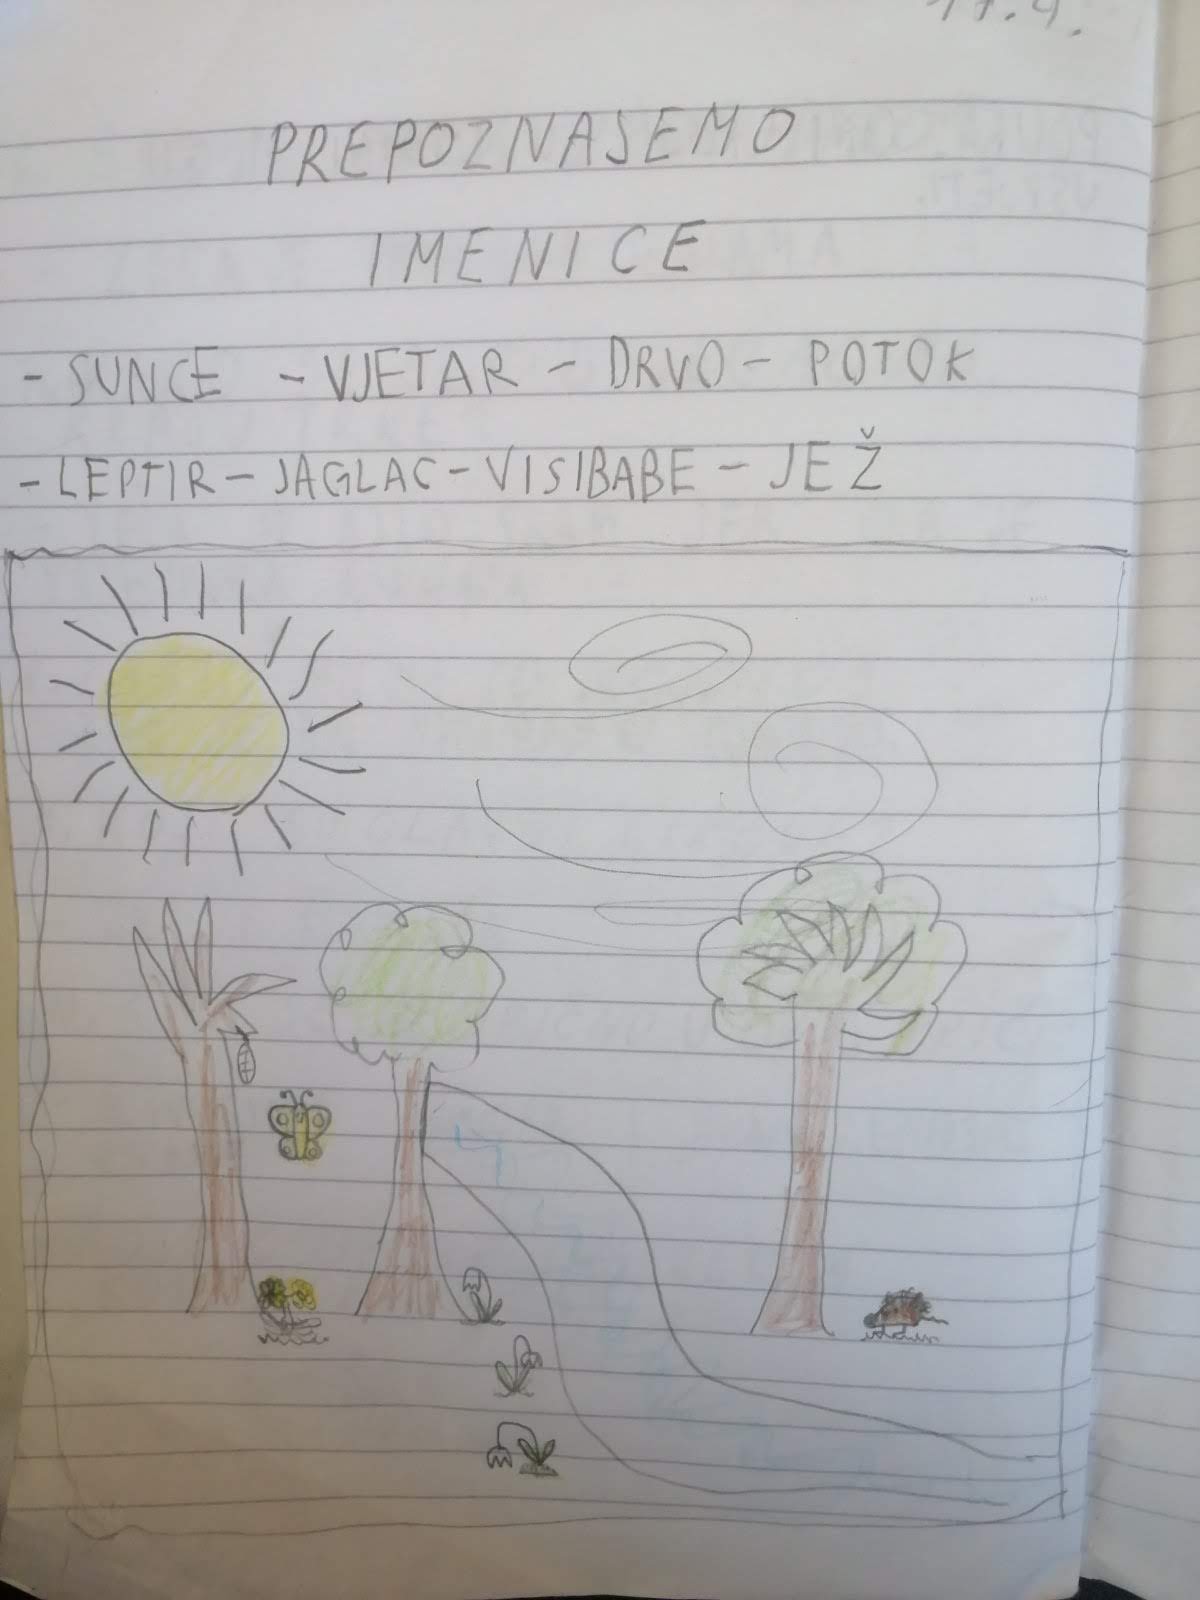 17.4.
PREPOZNAJEMO
IMENICE
- SUNCE - VJETAR - DRVO - POTOK
- LEPTIR - JAGLAC - VISIBABE - JEŽ